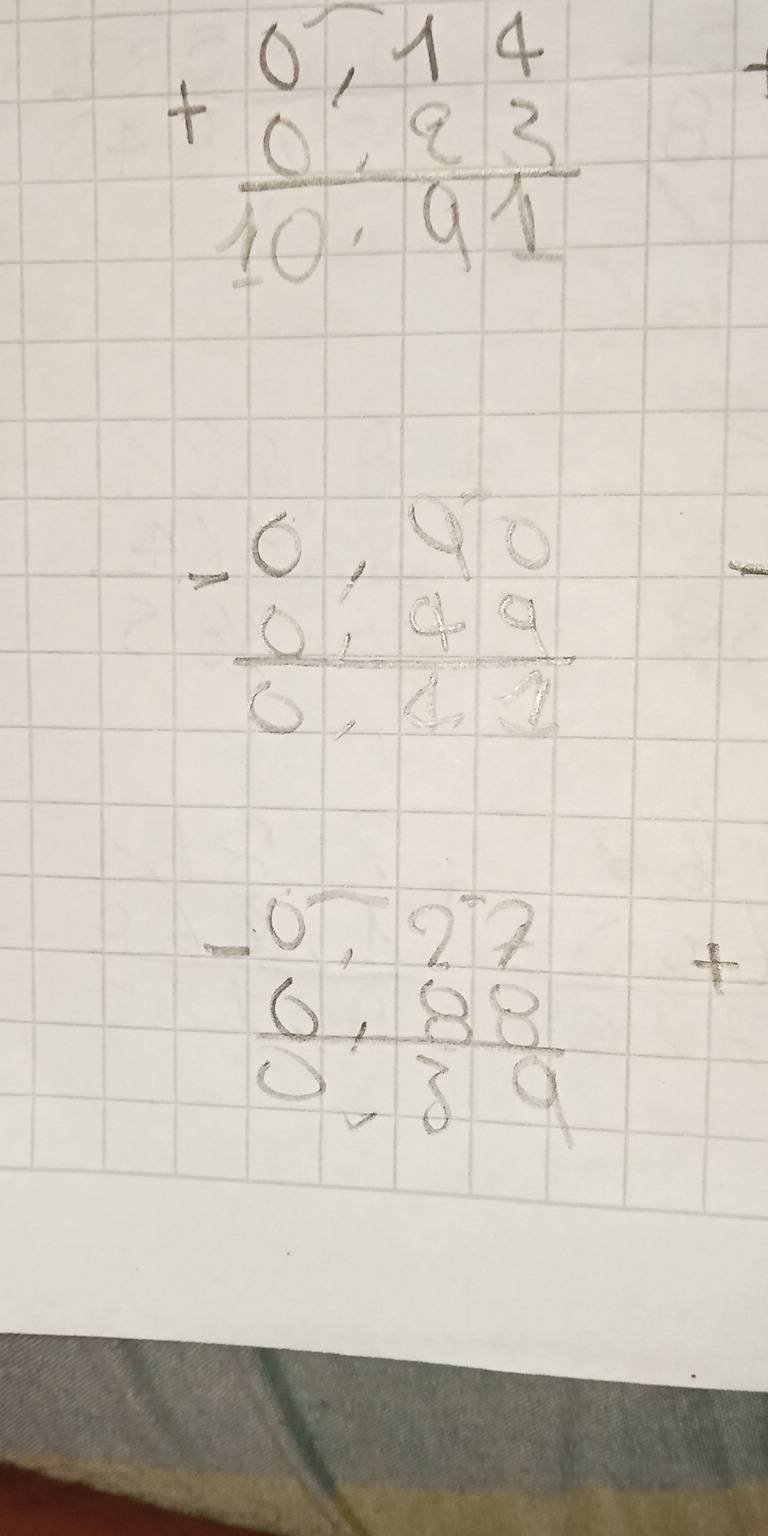 0,14
+ 0,83
10,91
- 0,90
0,49
0,41
- 0,27
0,88
0,39
+
-
+